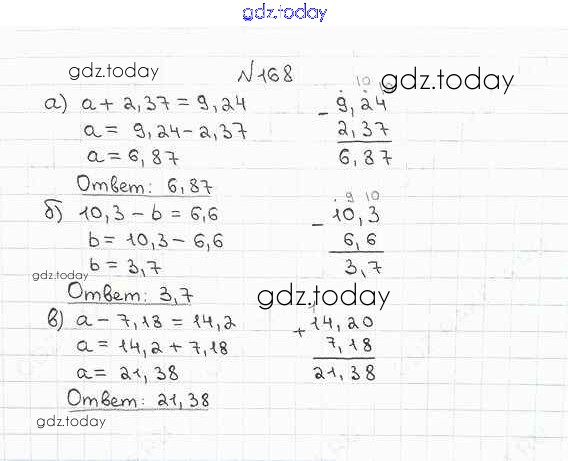 gdz.today
gdz.today
№168
gdz.today
а) a + 2,37 = 9,24
a = 9,24 - 2,37
a = 6,87
Ответ: 6,87
10
- 9,24
2,37
6,87
б) 10,3 - b = 6,6
b = 10,3 - 6,6
b = 3,7
Ответ: 3,7
9 10
- 10,3
6,6
3,7
gdz.today
gdz.today
в) a - 7,18 = 14,2
a = 14,2 + 7,18
a = 21,38
Ответ: 21,38
+ 14,20
7,18
21,38
gdz.today